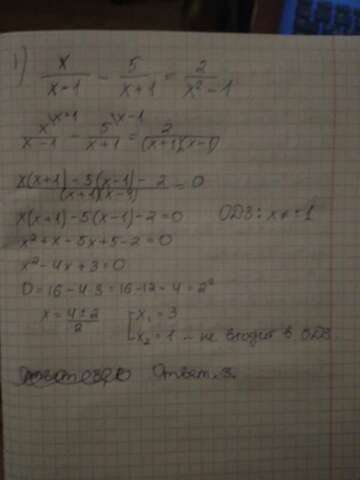 1) x/(x-1) - 5/(x+1) = 2/(x²-1)
x\x+1/(x-1) - 5\x-1/(x+1) = 2/((x+1)(x-1))
(x(x+1)-5(x-1)-2)/((x+1)(x-1)) = 0
x(x+1)-5(x-1)-2=0 ОДЗ: x≠±1
x²+x-5x+5-2=0
x²-4x+3=0
D=16-4·3=16-12=4=2²
x=(4±2)/2 [x₁=3
x₂=1 - не входит в ОДЗ
Ответ: 3.